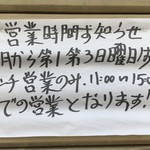 営業時間お知らせ
月から第1第3日曜日は
チ営業のみ、11:00〜150
での営業となります!